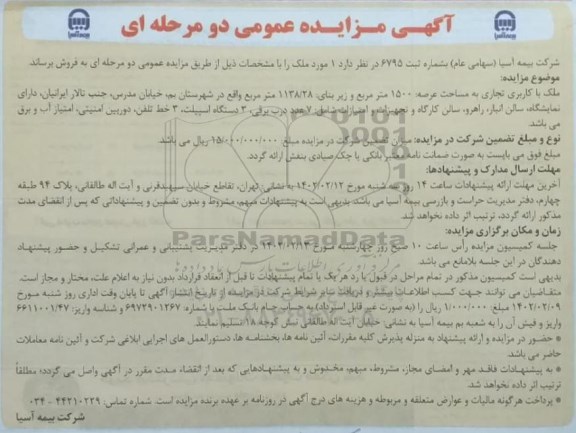 آگهی مزایده عمومی دو مرحله ای
بیمه آسیا
بیمه آسیا
شرکت بیمه آسیا (سهامی عام) بشماره ثبت ۶۷۹۵ در نظر دارد ۱ مورد ملک را با مشخصات ذیل از طریق مزایده عمومی دو مرحله ای به فروش برساند.
موضوع مزایده:
ملک با کاربری تجاری به مساحت عرصه: ۱۵۰۰ متر مربع و زیر بنای: ۱۱۳۸/۲۸ متر مربع واقع در شهرستان بم، خیابان مدرس، جنب تالار ایرانیان، دارای
نمایشگاه، سالن انبار، راهرو، سالن کارگاه و تجهیزات و امتیازات شامل: ۷ عدد درب برقی، ۳ دستگاه اسپیلت، ۳ خط تلفن، دوربین امنیتی، امتیاز آب و برق
می باشد.
نوع و مبلغ تضمین شرکت در مزایده: میزان تضمین شرکت در مزایده مبلغ ۱۵/۰۰۰/۰۰۰/۰۰۰ ریال می باشد.
مبلغ فوق می بایست به صورت ضمانت نامه معتبر بانکی یا چک صیادی بنفش ارائه گردد.
مهلت ارسال مدارک و پیشنهادها:
آخرین مهلت ارائه پیشنهادات ساعت ۱۴ روز سه شنبه مورخ ۱۴۰۲/۰۲/۱۲ به نشانی: تهران، تقاطع خیابان سپهبدقرنی و آیت اله طالقانی، پلاک ۹۴ طبقه
چهارم، دفتر مدیریت حراست و بازرسی بیمه آسیا می باشد. بدیهی است به پیشنهادات مبهم، مشروط و بدون تضمین و پیشنهاداتی که پس از انقضای مدت
مذکور ارائه گردد، ترتیب اثر داده نخواهد شد.
زمان و مکان برگزاری مزایده:
جلسه کمیسیون مزایده رأس ساعت ۱۰ صبح روز چهارشنبه مورخ در دفتر مدیریت پشتیبانی و عمرانی تشکیل و حضور پیشنهاد
دهندگان در این جلسه بلامانع می باشد.
بدیهی است کمیسیون مذکور در تمام مراحل در قبول یا رد هر یک یا تمام پیشنهادات تا قبل از انعقاد قرارداد بدون نیاز به اعلام علت، مختار و مجاز است.
متقاضیان می توانند جهت کسب اطلاعات بیشتر و دریافت سایر شرایط شرکت در مزایده از تاریخ انتشار آگهی تا پایان وقت اداری روز شنبه مورخ
۱۴۰۲/۰۲/۰۹ مبلغ: ۱/۰۰۰/۰۰۰ ریال را (به صورت غیر قابل استرداد) به حساب جام بانک ملت با شماره: ۶۹۷۲۹۰۱۲۶۷ و شناسه واریز: ۶۶۱۱۰۰۱/۴۷
واریز و فیش آن را به شعبه بم بیمه آسیا به نشانی: خیابان آیت اله طالقانی نبش کوچه ۱۸ تسلیم نمایند.
* حضور در مزایده و ارائه پیشنهاد به منزله پذیرش کلیه مقررات، آئین نامه ها، بخشنامه ها، دستورالعمل های اجرایی ابلاغی شرکت و آئین نامه معاملات
حاضر می باشد.
* به پیشنهادات فاقد مهر و امضای مجاز، مشروط، مبهم، مخدوش و به پیشنهادهایی که بعد از انقضاء مدت مقرر در آگهی واصل می گردد؛ مطلقاً
ترتیب اثر داده نخواهد شد.
* پرداخت هرگونه مالیات و عوارض متعلقه و مربوطه و هزینه های درج آگهی در روزنامه بر عهده برنده مزایده است. شماره تماس: ۴۴۲۱۰۲۲۹ - ۰۳۴
شرکت بیمه آسیا
ParsNamadData